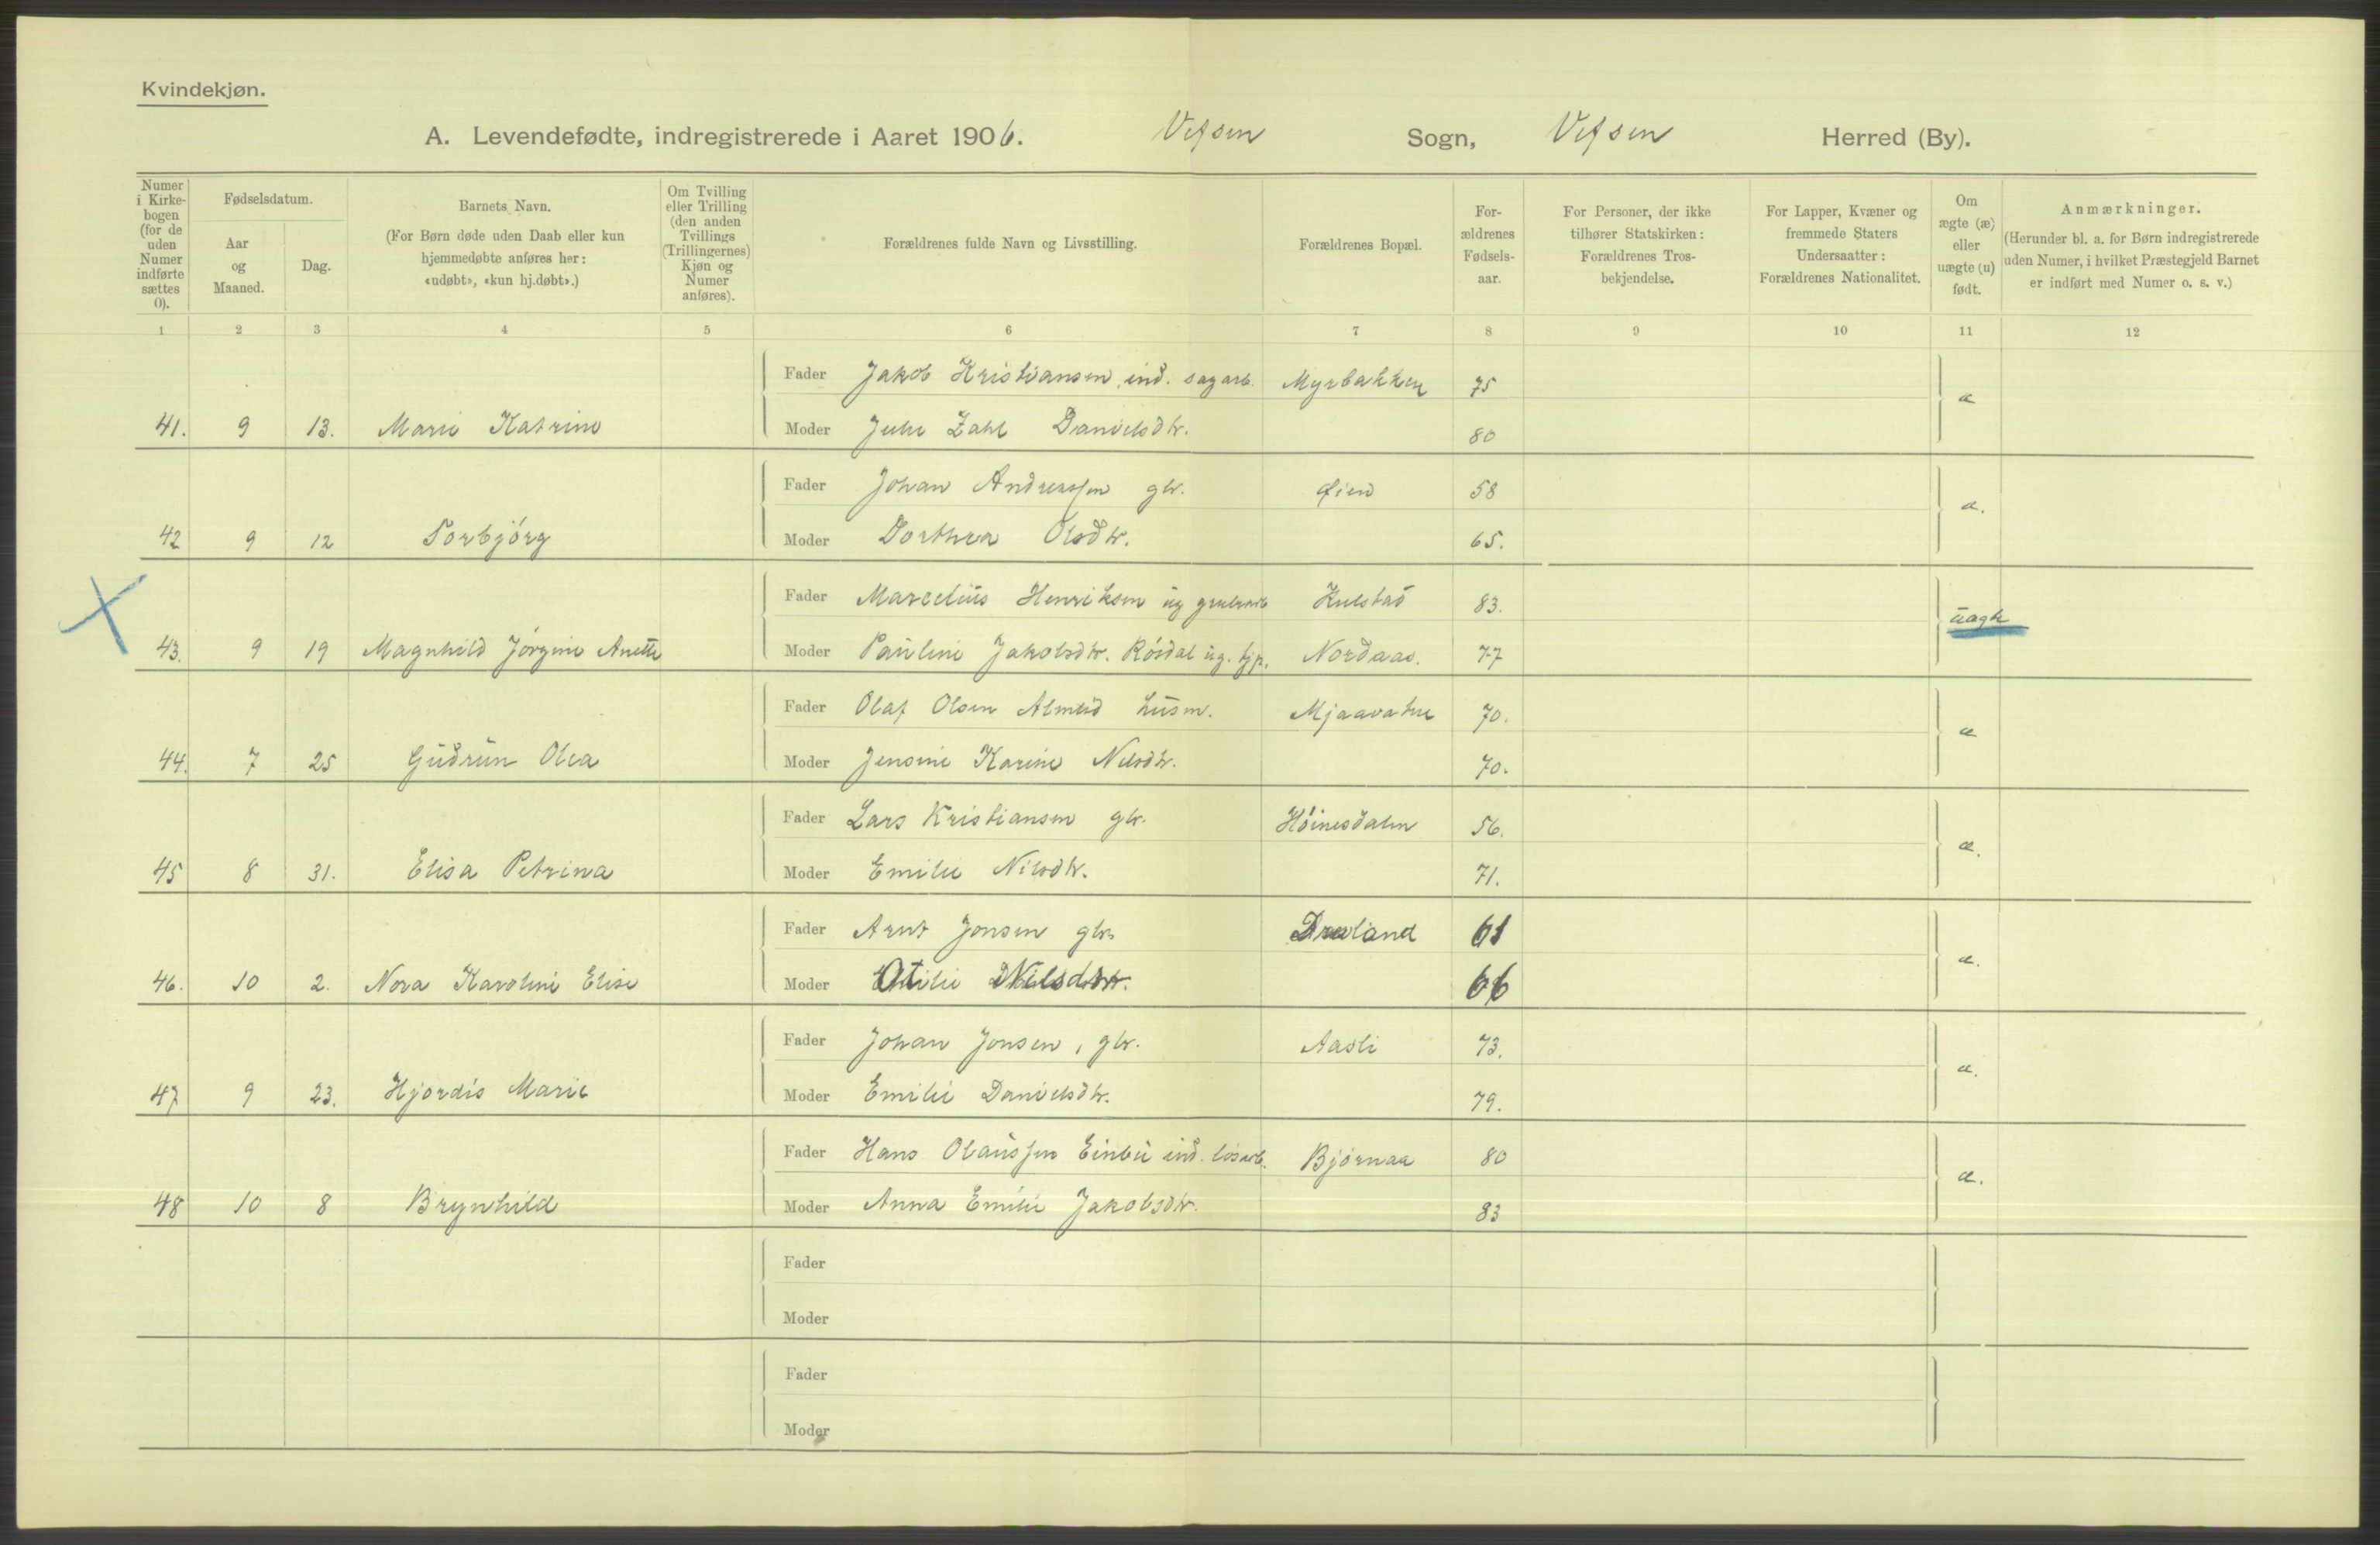 Kvindekjøn.
A. Levendefødte, indregistrerede i Aaret 1906. Vefsen Sogn, Vefsen Herred (By).
Numer i Kirkebogen (for de uden Numer indførte sættes 0).
Fødselsdatum.
Aar og Maaned.
Dag.
Barnets Navn.
(For Børn døde uden Daab eller kun hjemmedøbte anføres her: «udøbt», «kun hj.døbt».)
Om Tvilling eller Trilling (den anden Tvillings (Trillingernes) Kjøn og Numer anføres).
Forældrenes fulde Navn og Livsstilling.
Forældrenes Bopæl.
Forældrenes Fødselsaar.
For Personer, der ikke tilhører Statskirken: Forældrenes Trosbekjendelse.
For Lapper, Kvæner og fremmede Staters Undersaatter: Forældrenes Nationalitet.
Om ægte (æ) eller uægte (u) født.
Anmærkninger.
(Herunder bl. a. for Børn indregistrerede uden Numer, i hvilket Præstegjeld Barnet er indført med Numer o. s. v.)
1 2 3 4 5 6 7 8 9 10 11 12
Fader Jakob Kristiansen, ind. sagarb. Myrbakken 75 æ
41. 9 13. Marie Katrine Moder Julie Zahl Danielsdtr. 80
Fader Johan Anderssen gbr. Øien 58 æ.
42 9 12 Torbjórg Moder Dorthea Olsdtr. 65.
Fader Marcelius Henriksen ug grubearb Kulstad 83. uægte
43. 9 19 Magnhild Jórgine Anette Moder Pauline Jakobsdtr. Rósdal ug. tjp. Nordaas. 77
Fader Olaf Olsen Almeid husm. Mjaavatne 70. æ
44. 7 25 Gudrun Olea Moder Jensine Karine Nilsdtr. 70.
Fader Lars Kristiansen gbr. Hóinesdalen 56. æ.
45 8 31. Elisa Petrina Moder Emilie Nilsdtr. 71.
Fader Arnt Jonsen gbr. Drevland 61 æ.
46. 10 2. Nora Karoline Elise Moder Otilie Nilsdtr. 66
Fader Johan Jonsen, gbr. Aasli 73. æ.
47 9 23. Hjórdis Marie Moder Emilie Danielsdtr. 79.
Fader Hans Olaussen Einbu ind. lósarb. Bjórnaa 80 æ.
48 10 8 Brynhild Moder Anna Emilie Jakobsdtr. 83
Fader
Moder
Fader
Moder